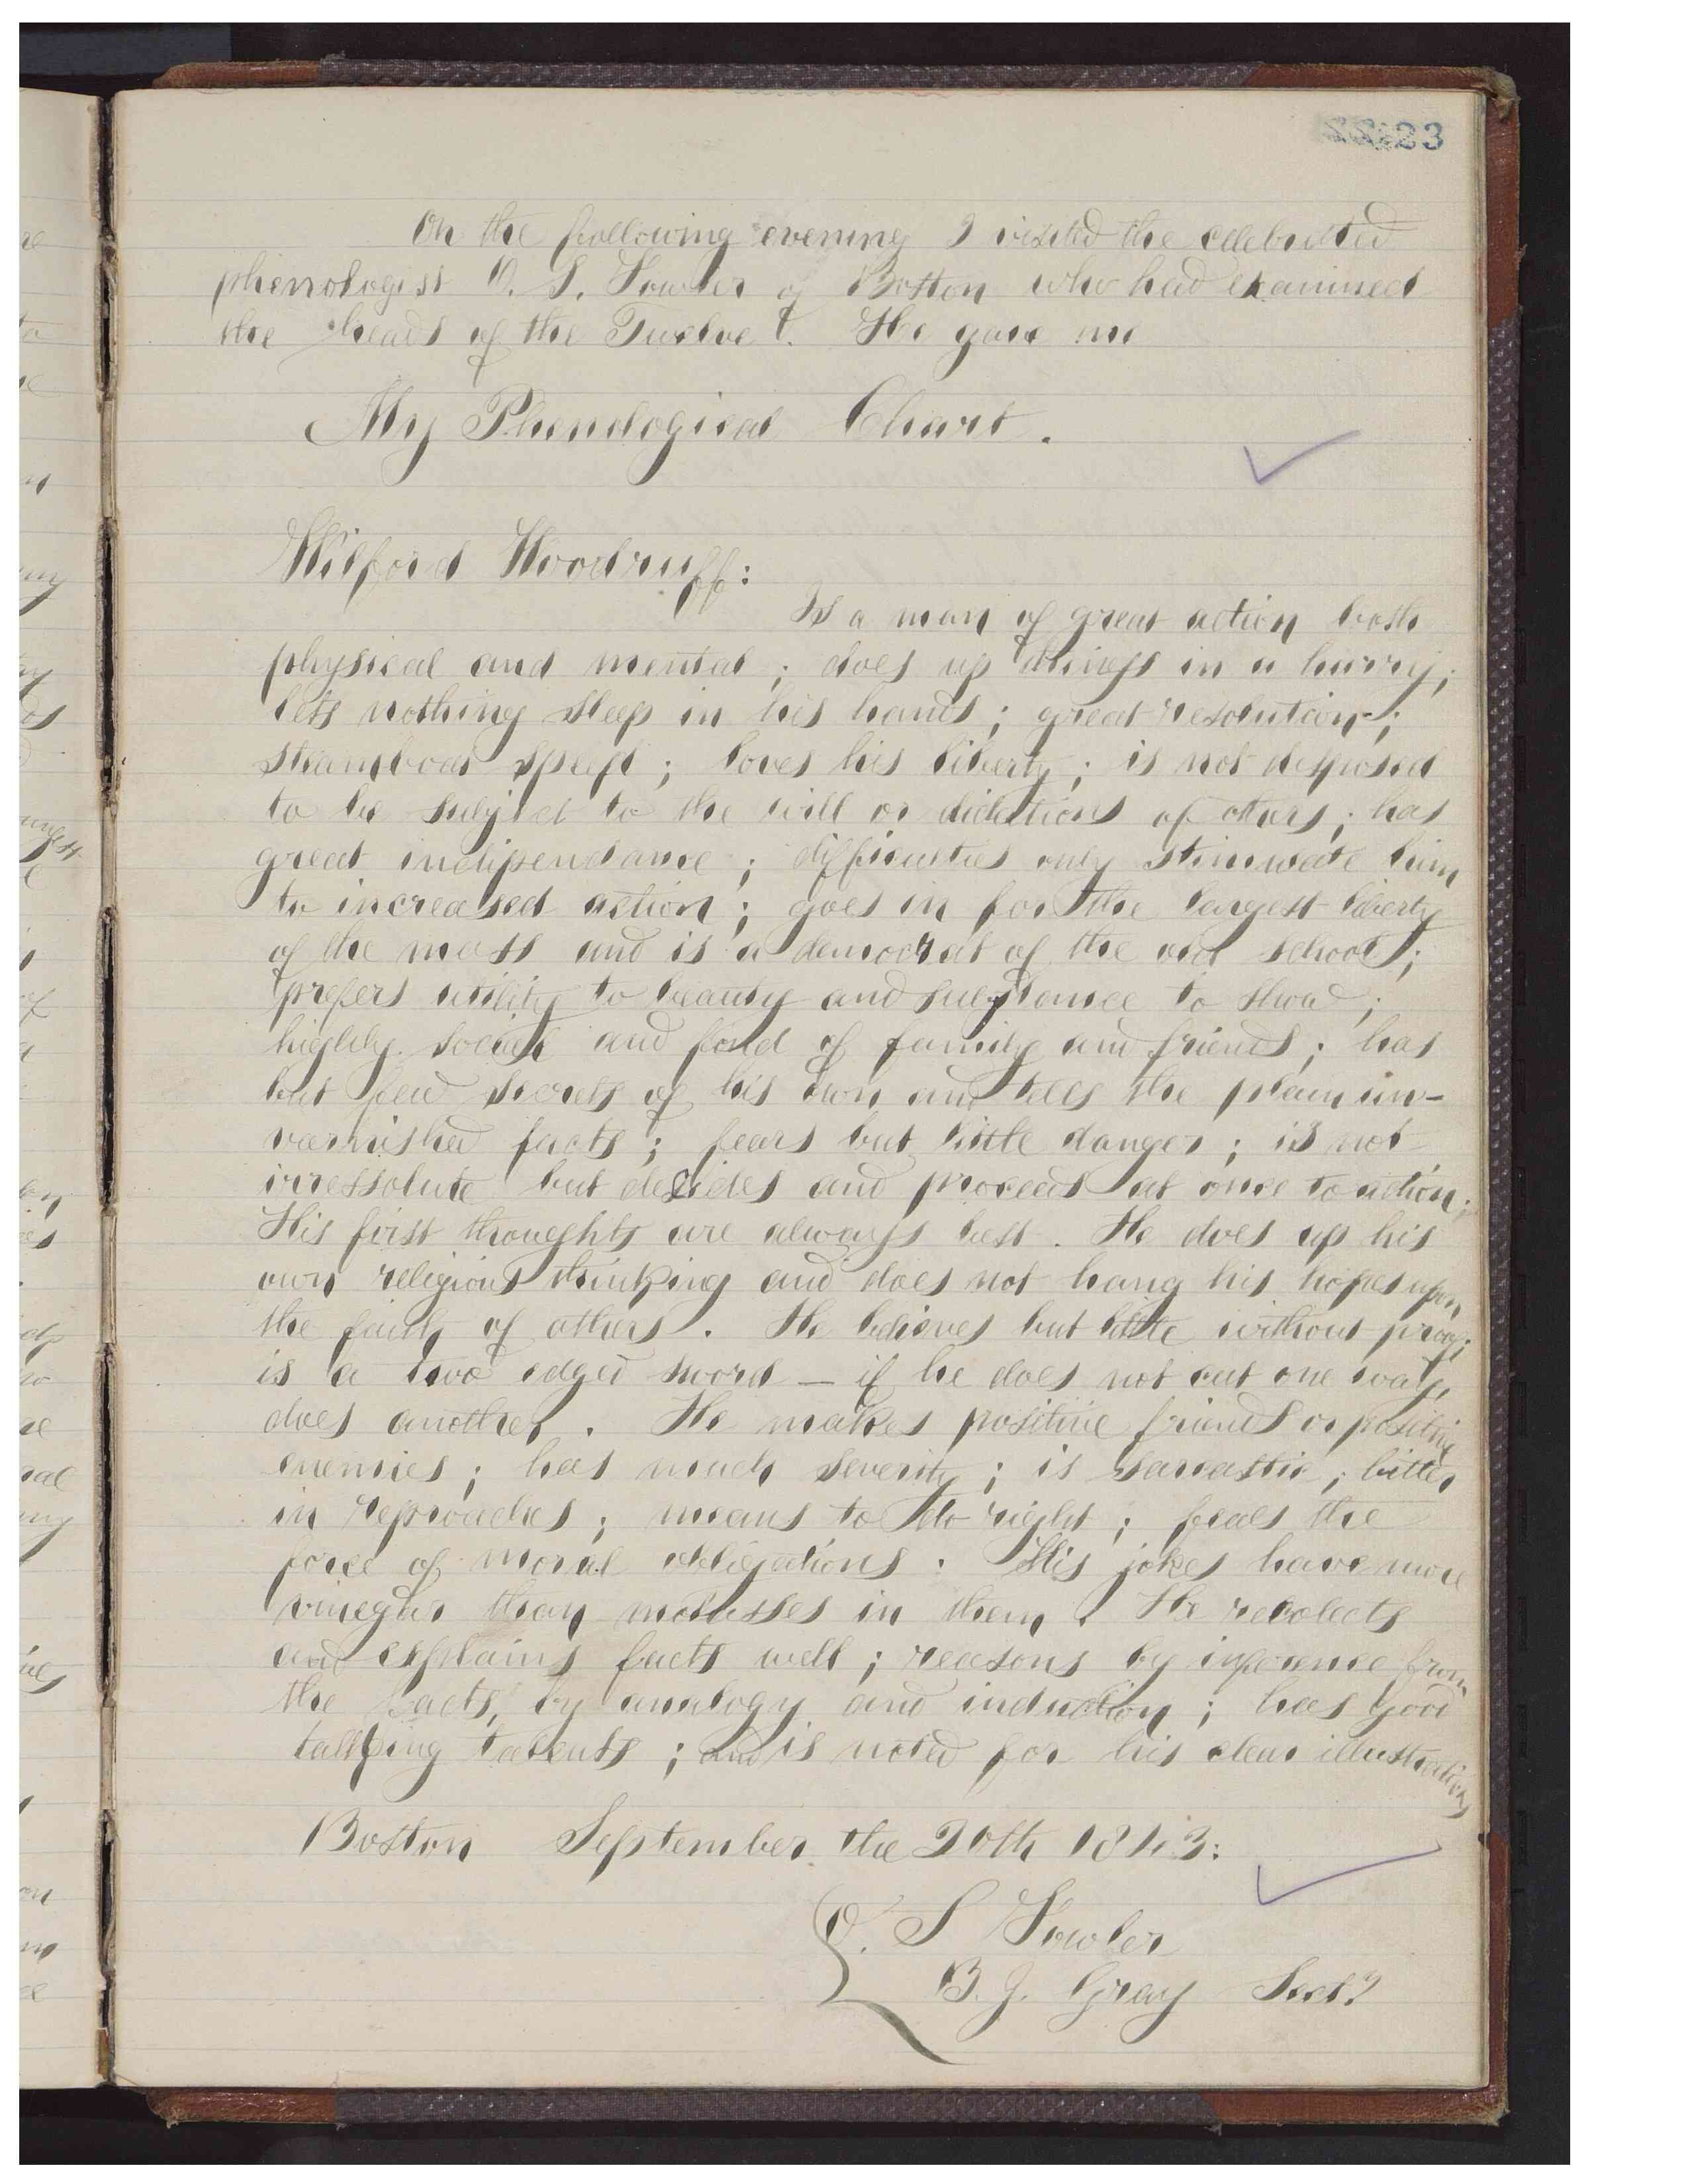 23
On the following evening I visited the celebrated
phenologist O. S. Fowler of Boston who had examined
the heads of the Twelve. He gave me
My Phenological Chart.
Wilford Woodruff:
Is a man of great action both
physical and mental; does up things in a hurry;
lets nothing sleep in his hands; great resolution;
steamboat speed; loves his liberty; is not disposed
to be subject to the will or dictations of others; has
great indipendance; difficulties only stimulate him
to increased action; goes in for the largest liberty
of the mass and is a democrat of the old school;
prefers utility to beauty and substance to show;
highly social and fond of family and friends; has
but few secrets of his own and tells the plain un-
varnished facts; fears but little danger; is not
irressolute but decides and proceeds at once to action;
His first thoughts are always best. He does up his
own religious thinking and does not hang his hopes upon
the faith of others. He believes but little without proof;
is a two edged sword — if he does not cut one way,
does another. He makes positive friends or positive
enemies; has much severity; is sarcastic; bitter
in reproaches; means to do right; feels the
force of moral obligations. His jokes have more
vinegar than molasses in them. He recolects
and explains facts well; reasons by inference from
the facts, by analogy and induction; has good
talking talents; and is noted for his clear illustrations
Boston September the 20th 1843:
O. S Fowler
B. J. Gray Sect.